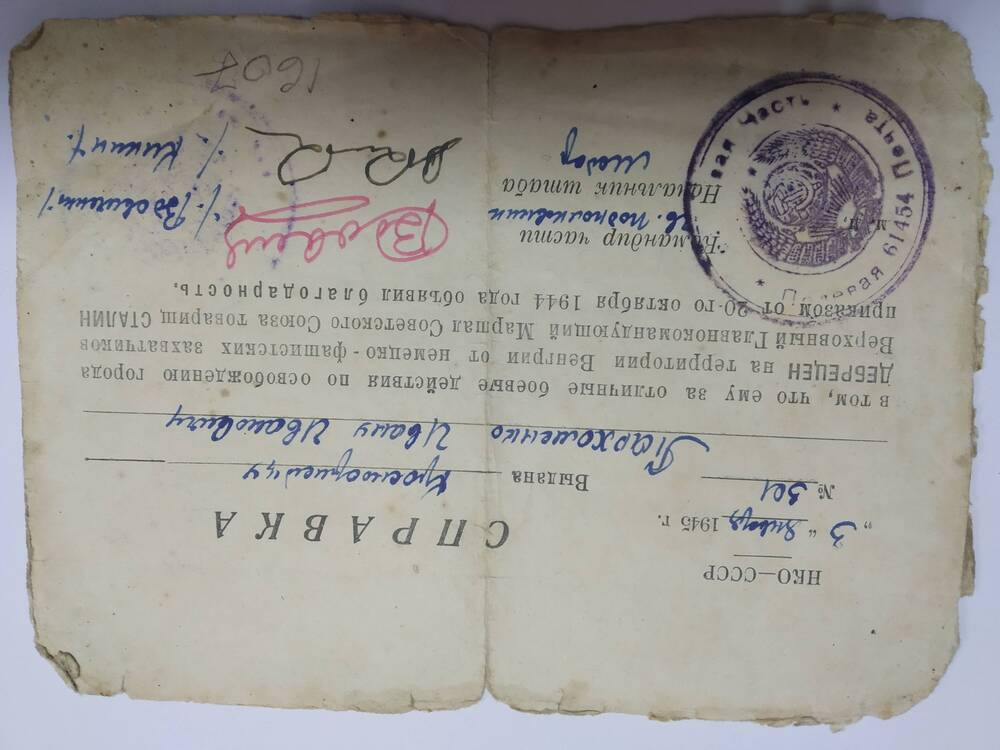 НКО—СССР
„3“ января 1945 г.
№ 301
СПРАВКА
Выдана Красноармейцу
Пархоменко Ивану Ивановичу
в том, что ему за отличные боевые действия по освобождению города
ДЕБРЕЦЕН на территории Венгрии от немецко-фашистских захватчиков
Верховный Главнокомандующий Маршал Советского Союза товарищ СТАЛИН
приказом от 20-го октября 1944 года объявил благодарность.
М. П.
Командир части
гв. подполковник
/Вдовиченко/
Начальник штаба
майор
/Кикин/
Полевая Почта 61454
Часть
1607